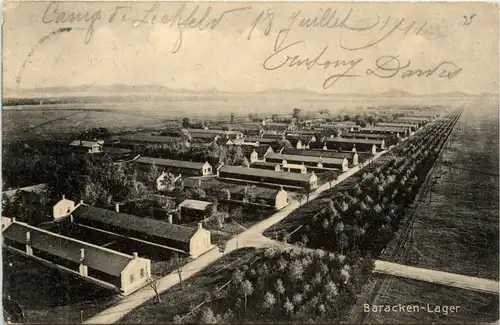 Camp de Lechfeld 18 Juillet 1911
Antony
25
Baracken-Lager